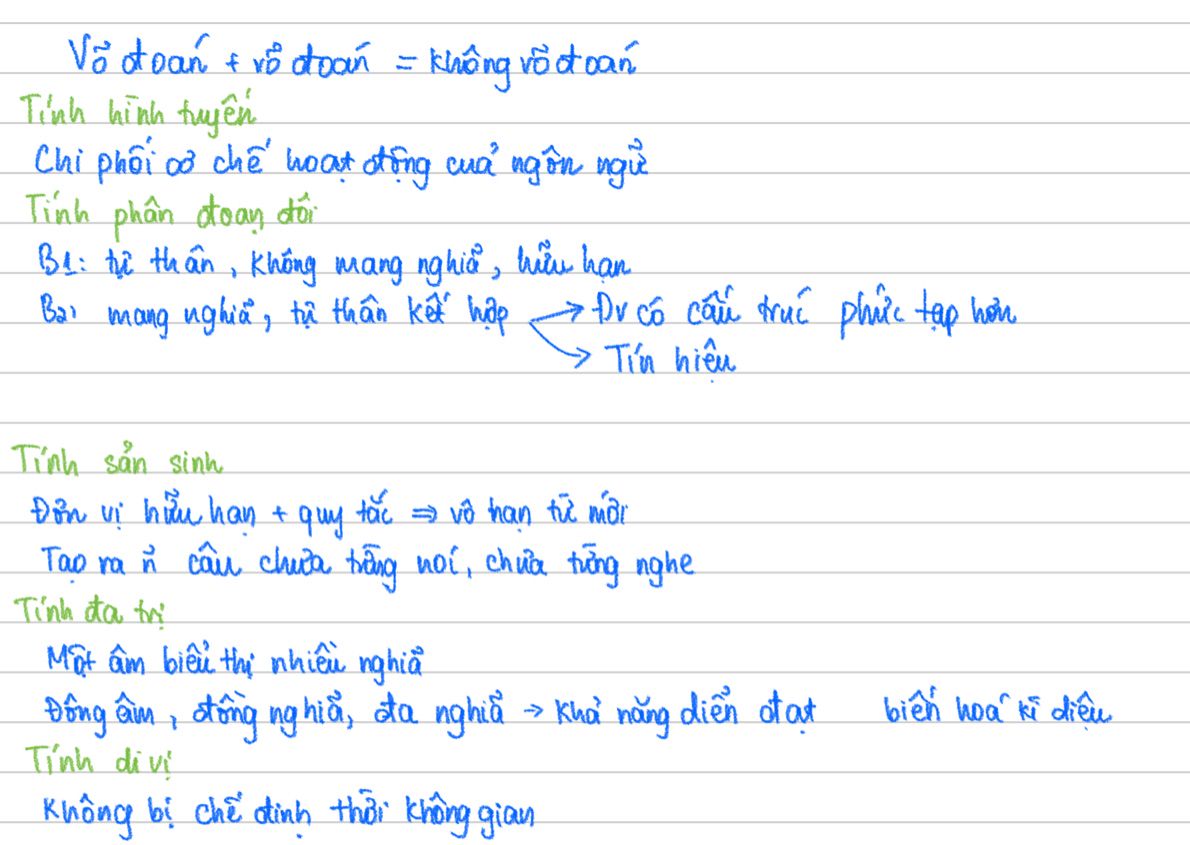 Võ đoán + võ đoán = không võ đoán
Tính hình tuyến
Chi phối cơ chế hoạt động của ngôn ngữ
Tính phân đoạn đôi
B1: tự thân, không mang nghĩa, hữu hạn
B2: mang nghĩa, tự thân kết hợp → Đv có cấu trúc phức tạp hơn
→ Tín hiệu
Tính sản sinh
Đơn vị hữu hạn + quy tắc ⇒ vô hạn từ mới
Tạo ra n câu chưa từng nói, chưa từng nghe
Tính đa trị
Một âm biểu thị nhiều nghĩa
Đồng âm, đồng nghĩa, đa nghĩa → khả năng diễn đạt biến hoá kì diệu
Tính di vị
Không bị chế định thời không gian